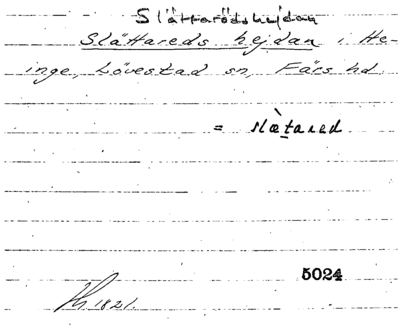 Slättarödshejdan
Slättareds hejdan i He-
inge, Lövestad sn, Färs hd.
= slæ̀tared
5024
1821.